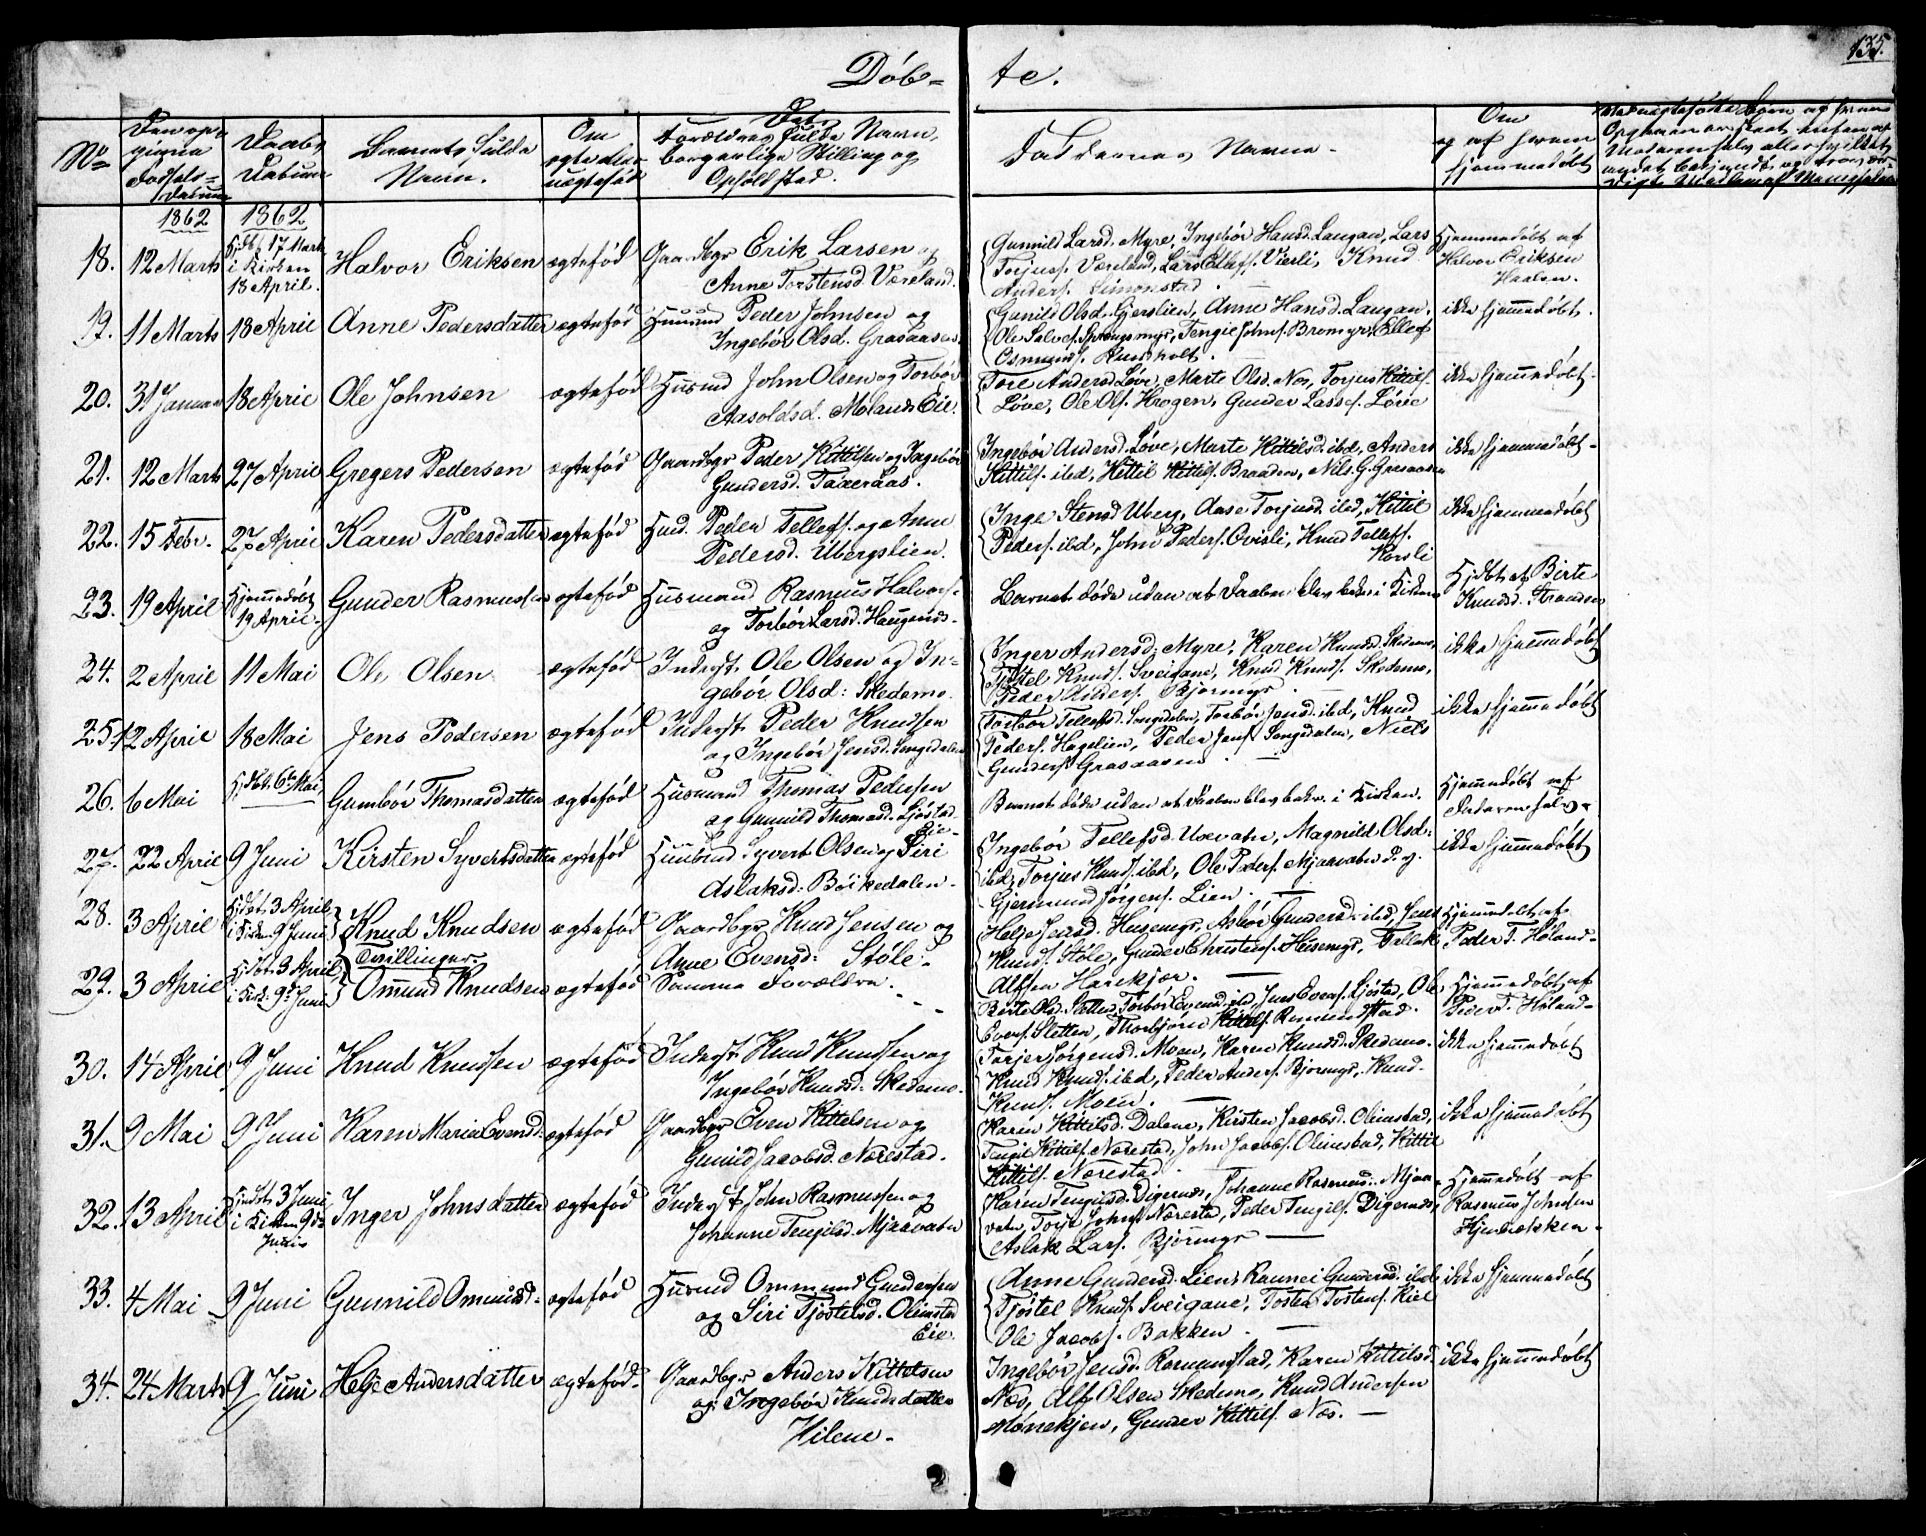 135.
Döb= te.
No
Den op=
givne
Fødsels=
Datum
Daabs
Datum
Barnets fulde
Navn.
Om
ægte eller
uægtefød
Forældrenes fulde Navn,
borgerlige Stilling og
Opholdsted.
Faddernes Navne.
Om
og af hvem
hjemmedøbt
1862 1862
18. 12 Marts Hjdbt. 17 Marts i Kirken 18 April. Halvor Eriksen ægtefød Gaardbgr Erik Larsen og
Anne Torstensd. Væreland.
Gunnild Larsd. Myre, Ingebør Hansd. Laugan, Lars
Torjusf. Væreland, Lars Ellefs. Vierli, Knud
Anders. Simonstad.
Hjemmedøbt af
Halvor Eriksen
Haalen.
19. 11 Marts 18 April Anne Pedersdatter ægtefød Husmd Peder Johnsen og
Ingebør Olsd. Grasaasen.
Gunild Olsd. Gjerslien, Anne Hansd. Laugan,
Ole Salves. Sprengsmyr, Tengie Johns. Bromyr, Ellef
Osmunds.
ikke hjemmedøbt.
20. 31 Januar 18 April Ole Johnsen ægtefød Husmd John Olsen og Torbør
Aasoldsd. Molands Eie.
Tore Andersd Løve, Marte Olsd. Næs, Torjus Kittils.
Løve, Ole Ols. Krogen, Gunder Lasses. Løvie
ikke hjemmedøbt.
21. 12 Marts 27 April Gregers Pedersen ægtefød Gaardbgr Peder Kittilsen og Ingebør
Gundersd. Taxeraas.
Ingebør Andersd. Løve, Marte Kittilsd. ibd, Anders
Kittils. ibd, Kittil Kittils. Braaden, Nils G. Grasaasen
ikke hjemmedøbt.
22. 15 Febr. 27 April Karen Pedersdatter ægtefød Husd. Peder Tellefs. og Anne
Pedersd. Ubergslien.
Inge Stensd Uberg, Aase Torjusd. ibd, Kittil
Peders. ibd, John Peders. Ovisli, Knud Tellefs.
Korsli
ikke hjemmedøbt
23. 19 April Hjemmedøbt 19 April. Gunder Rasmussen ægtefød Husmand Rasmus Halvors.
og Torbør Larsd. Haugenes.
Barnet døde uden at Daaben blev bekr. i Kirken
Hjdbt. af Birte
Knudsd. Strandes
24. 2 April 11 Mai Ole Olsen ægtefød Inderst. Ole Olsen og In=
gebør Olsd: Skedemo.
Inger Andersd. Myre, Karen Knudsd. Skedemo,
Tjøstel Knuds. Sveigane, Knud Knuds. Skedemo,
Peder Anders. Bjorings.
ikke hjemmedøbt
25. 12 April 18 Mai Jens Pedersen ægtefød Inderst Peder Knudsen
og Ingebør Jensd. Songedalen
Torbør Tellefsd. Songedalen, Torbør Jensd. ibd, Knud
Peders. Hagelien, Peder Jens. Songedalen, Niels
Gunders. Grasaasen.
ikke hjemmedøbt
26. 6 Mai Hjdbt. 6te Mai, Gumbør Thomasdatter ægtefød Husmand Thomas Pedersen
og Gunnild Thomasd. Sjøstad
Eie.
Barnet døde uden at Daaben blev bekr. i Kirken.
Hjemmedøbt af
Faderen selv.
27. 22 April 9 Juni Kirsten Syvertsdatter ægtefød Husmd Syvert Olsen og Siri
Aslaksd. Böikedalen.
Ingebør Tellefsd. Uxevatn, Magnild Olsd:
ibd, Torjus Knuds. ibd, Ole Peders. Mjaavatn P. g.
Gjermund Jørgens. Lien.
ikke hjemmedøbt
28. 3 April Hjdbt. 3 April i Kirken 9 Juni Knud Knudsen ægtefød Gaardbgr Knud Jensen og
Anne Evensd: Støle.
Tvillinger.
Helje Jensd. Husemyr, Asbør Gundersd. ibd, Jens
Knuds. Støle, Gunder Christens. Husemyr, Tellak
Alfsen Harekjær.
Hjemmedøbt af
Peder T. Høland
29. 3 April Hjdbt. 3 April i Kirk: 9de Juni Omund Knudsen ægtefød Samme Forældre.
Birte Olsd. Sletten, Torbør Evensd. ibd, Jens Evens. Sjøstad, Ole
Evens. Sletten, Thorbjørn Kittils. Romundstad.
Hjemmedøbt af
Peder T. Høland
30. 14 April 9 Juni Knud Knudsen ægtefød Inderst. Knud Knudsen og
Ingebør Knudsd. Skedemo.
Torjer Jörgensd. Moen, Karen Knudsd. Skedemo.
Knud Knuds. ibd, Peder Anders. Bjorings, Knud
Knuds. Moen.
ikke hjemmedøbt
31. 9 Mai 9 Juni Karen Marie Evensd: ægtefød Gaardbgr Even Kittelsen og
Gunild Jacobsd. Nærestad.
Karen Kittelsd. Dalene, Kirsten Jacobsd. Olimstad,
Tengil Kittils. Nærestad, John Jacobs. Olimstad, Kittil
Kittils. Nærestad.
ikke hjemmedøbt
32. 13 April Hjmdbt. 3 Juni i Kirken 9de Juni Inger Johnsdatter ægtefød Inderst John Rasmussen og
Johanne Tengilsd. Mjaavatn
Karen Tengilsd. Digernæs, Johanne Rasmusd. Mjaa=
vatn, Torje Johns Nærestad, Peder Tengils. Digernæs,
Aslak Lars. Bjorings
Hjemmedøbt af
Rasmus Johnsen
33. 4 Mai 9 Juni Gunnild Omunsd: ægtefød Husmd Ommund Gundersen
og Siri Tjøstelsd. Olimstad
Eie.
Anne Gundersd. Lien, Raunei Gundersd. ibd,
Tjöstel Knuds. Sveigane, Tosten Tostens. Kiel
Ole Jacobs. Bakken.
ikke hjemmedøbt
34. 24 Marts 9 Juni Helje Andersdatter ægtefød. Gaardbgr Anders Kittelsen
og Ingebør Knudsdatter
Hilene.
Ingebør Jensd. Romundstad, Karen Kittilsd.
Næs, Alf Olsen Skedemo, Knud Andersen
Mønekjen, Gunder Kittils. Næs.
ikke hjemmedøbt